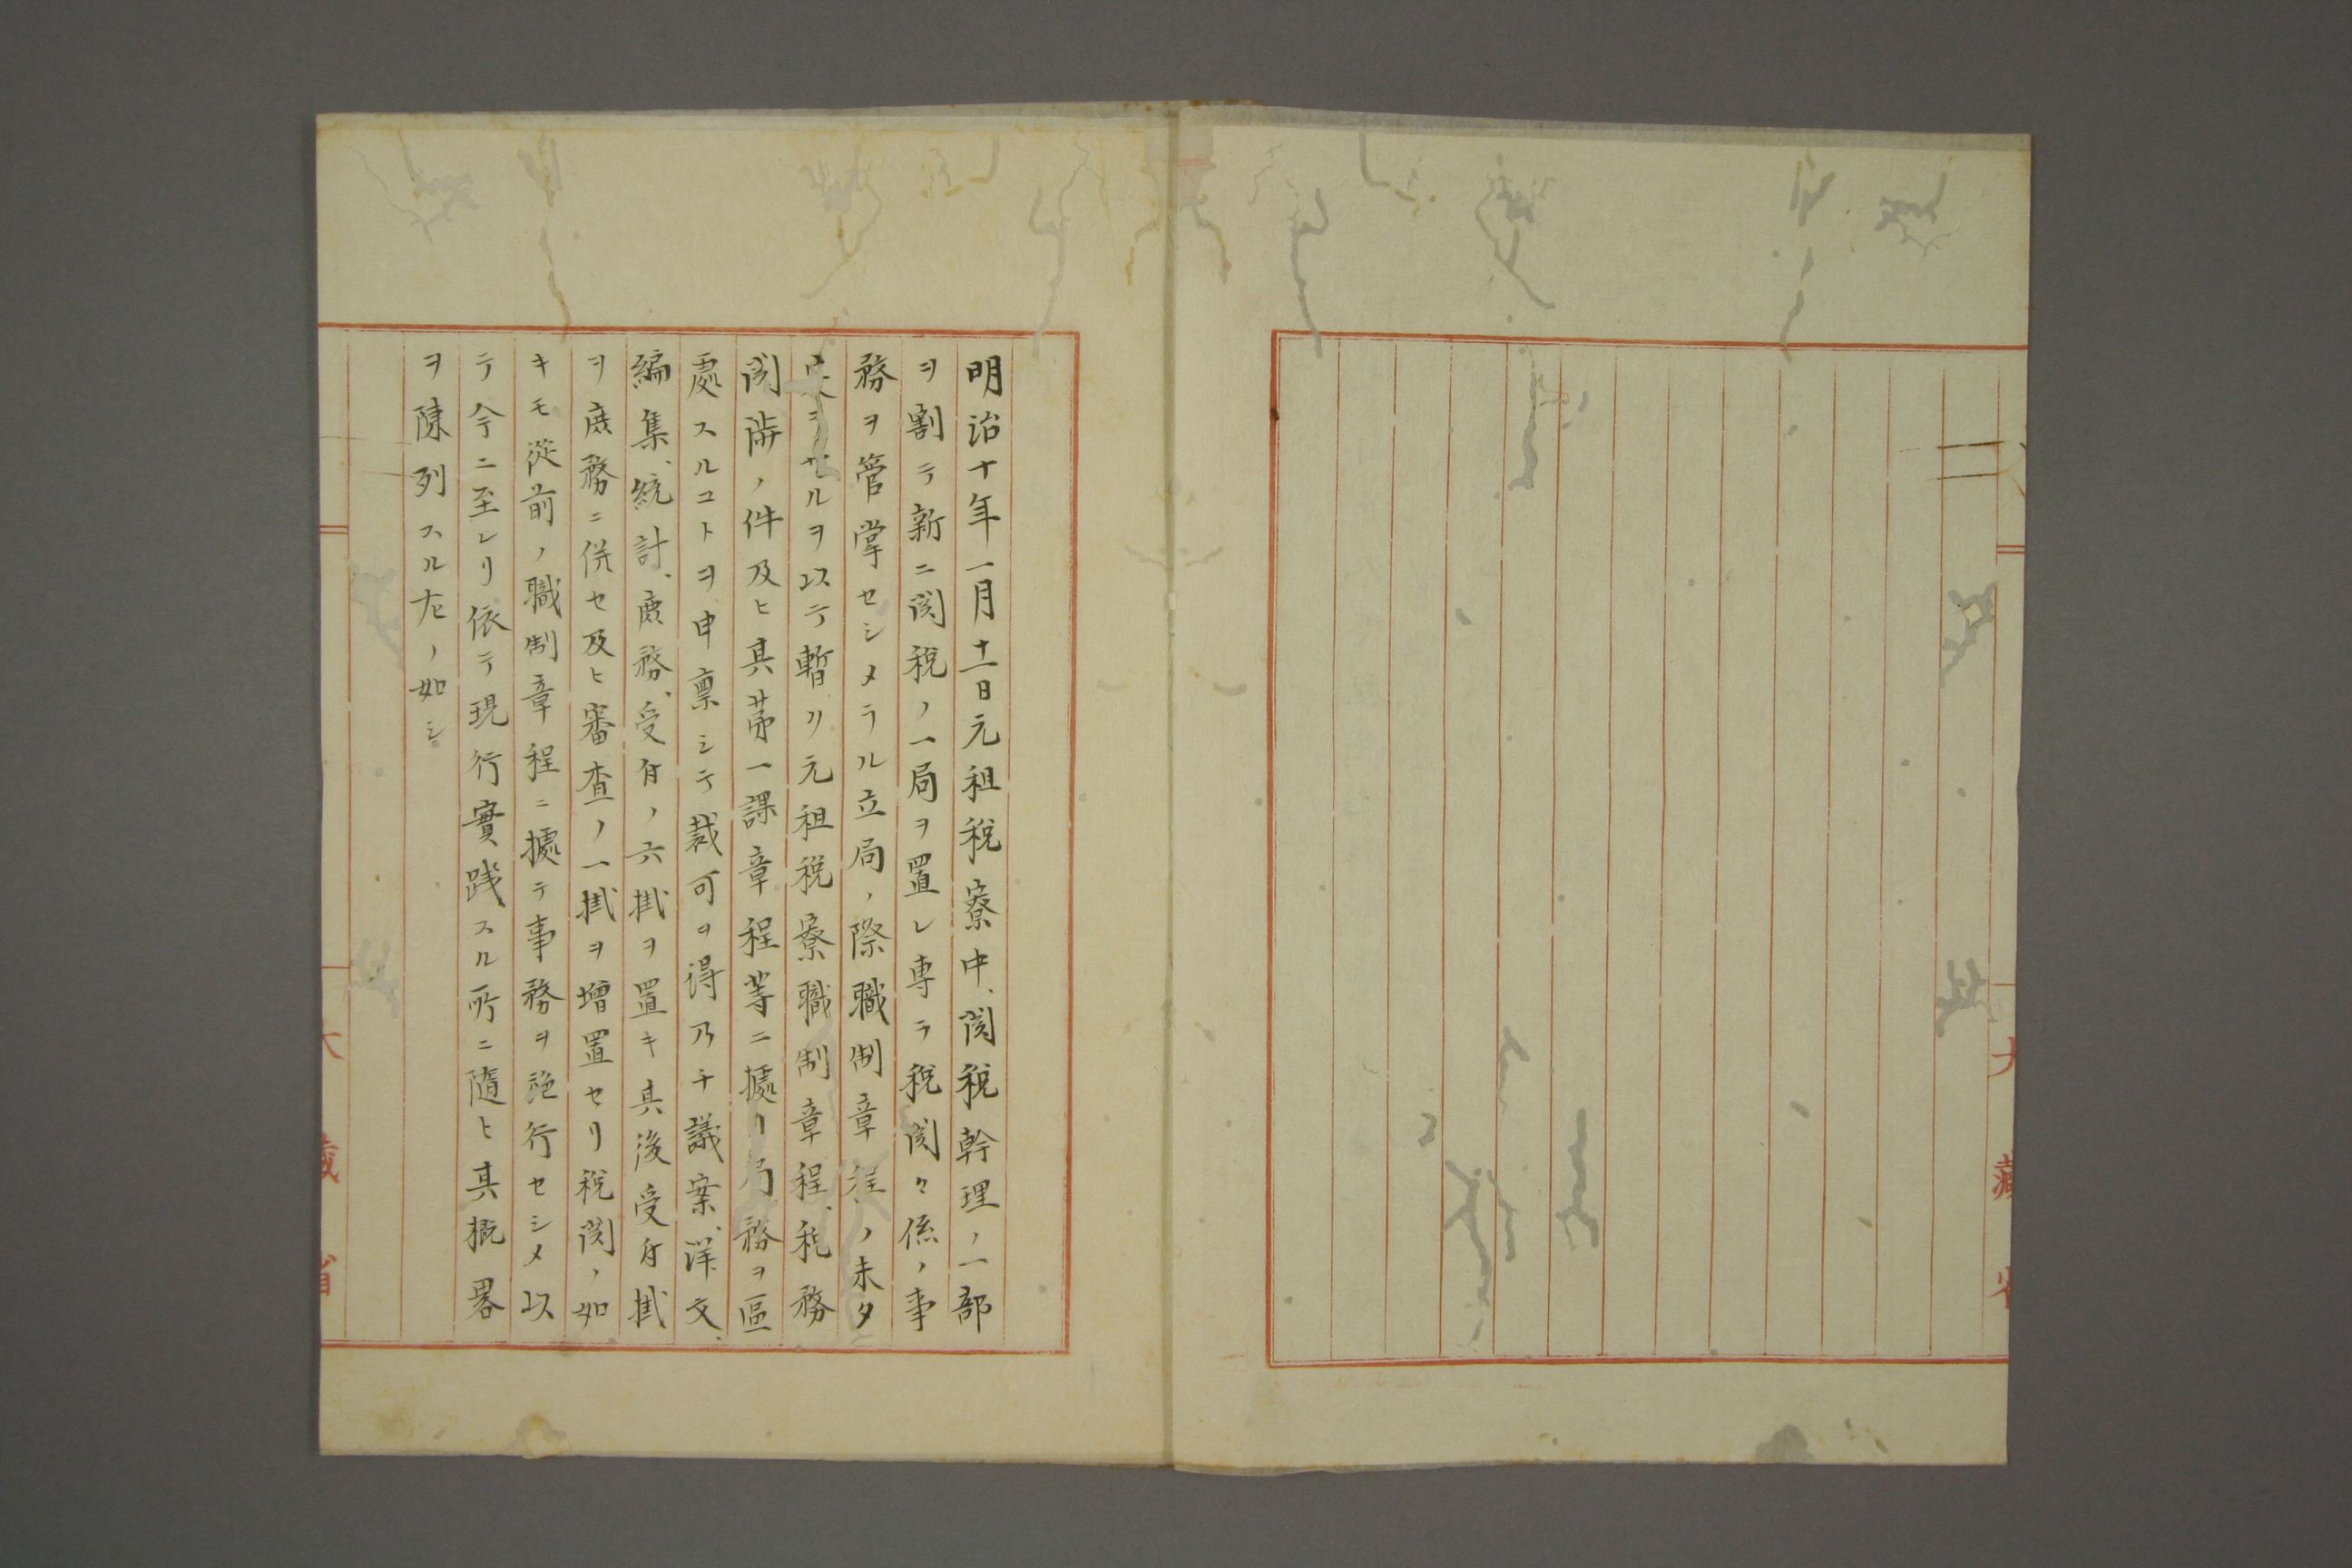 大藏省
明治十年一月十一日元租税寮中、関税幹理ノ一部
ヲ割テ新ニ関税ノ一局ヲ置レ専ラ税関々係ノ事
務ヲ管掌セシメラル立局ノ際職制章程ノ未タ
定ラサルヲ以テ暫リ元租税寮職制章程、税務
関渉ノ件及ヒ其第一課章程等ニ據リ局務ヲ區
處スルコトヲ申禀シテ裁可ヲ得乃チ議案、洋文、
編集、統計、庶務、受付ノ六掛ヲ置キ其後受付掛
ヲ庶務ニ併セ及ヒ審査ノ一掛ヲ增置セリ税関ノ如
キモ從前ノ職制章程ニ據テ事務ヲ施行セシメ以
テ今ニ至レリ依テ現行實踐スル所ニ隨ヒ其概畧
ヲ陳列スル左ノ如シ
大藏省